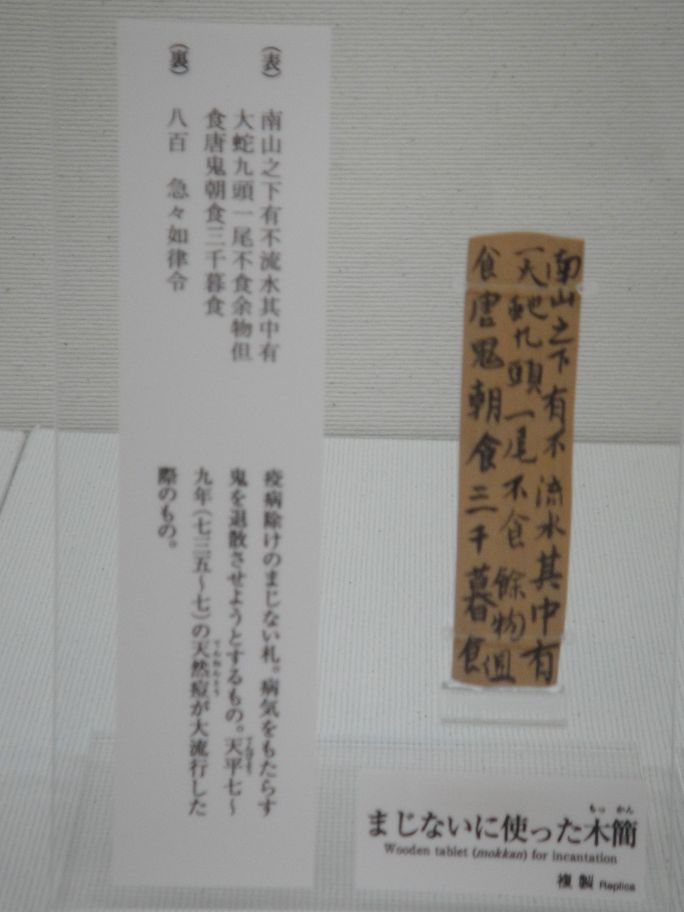 (表) 南山之下有不流水其中有
大蛇九頭一尾不食余物但
食唐鬼朝食三千暮食
(裏) 八百 急々如律令
疫病除けのまじない札。病気をもたらす
鬼を退散させようとするもの。天平七～
九年(七三五～七)の天然痘が大流行した
際のもの。
てんぴょう
てんねんとう
南山之下有不流水其中有
大蛇九頭一尾不食餘物但
食唐鬼朝食三千暮食
もっかん
まじないに使った木簡
Wooden tablet (mokkan) for incantation
複製 Replica